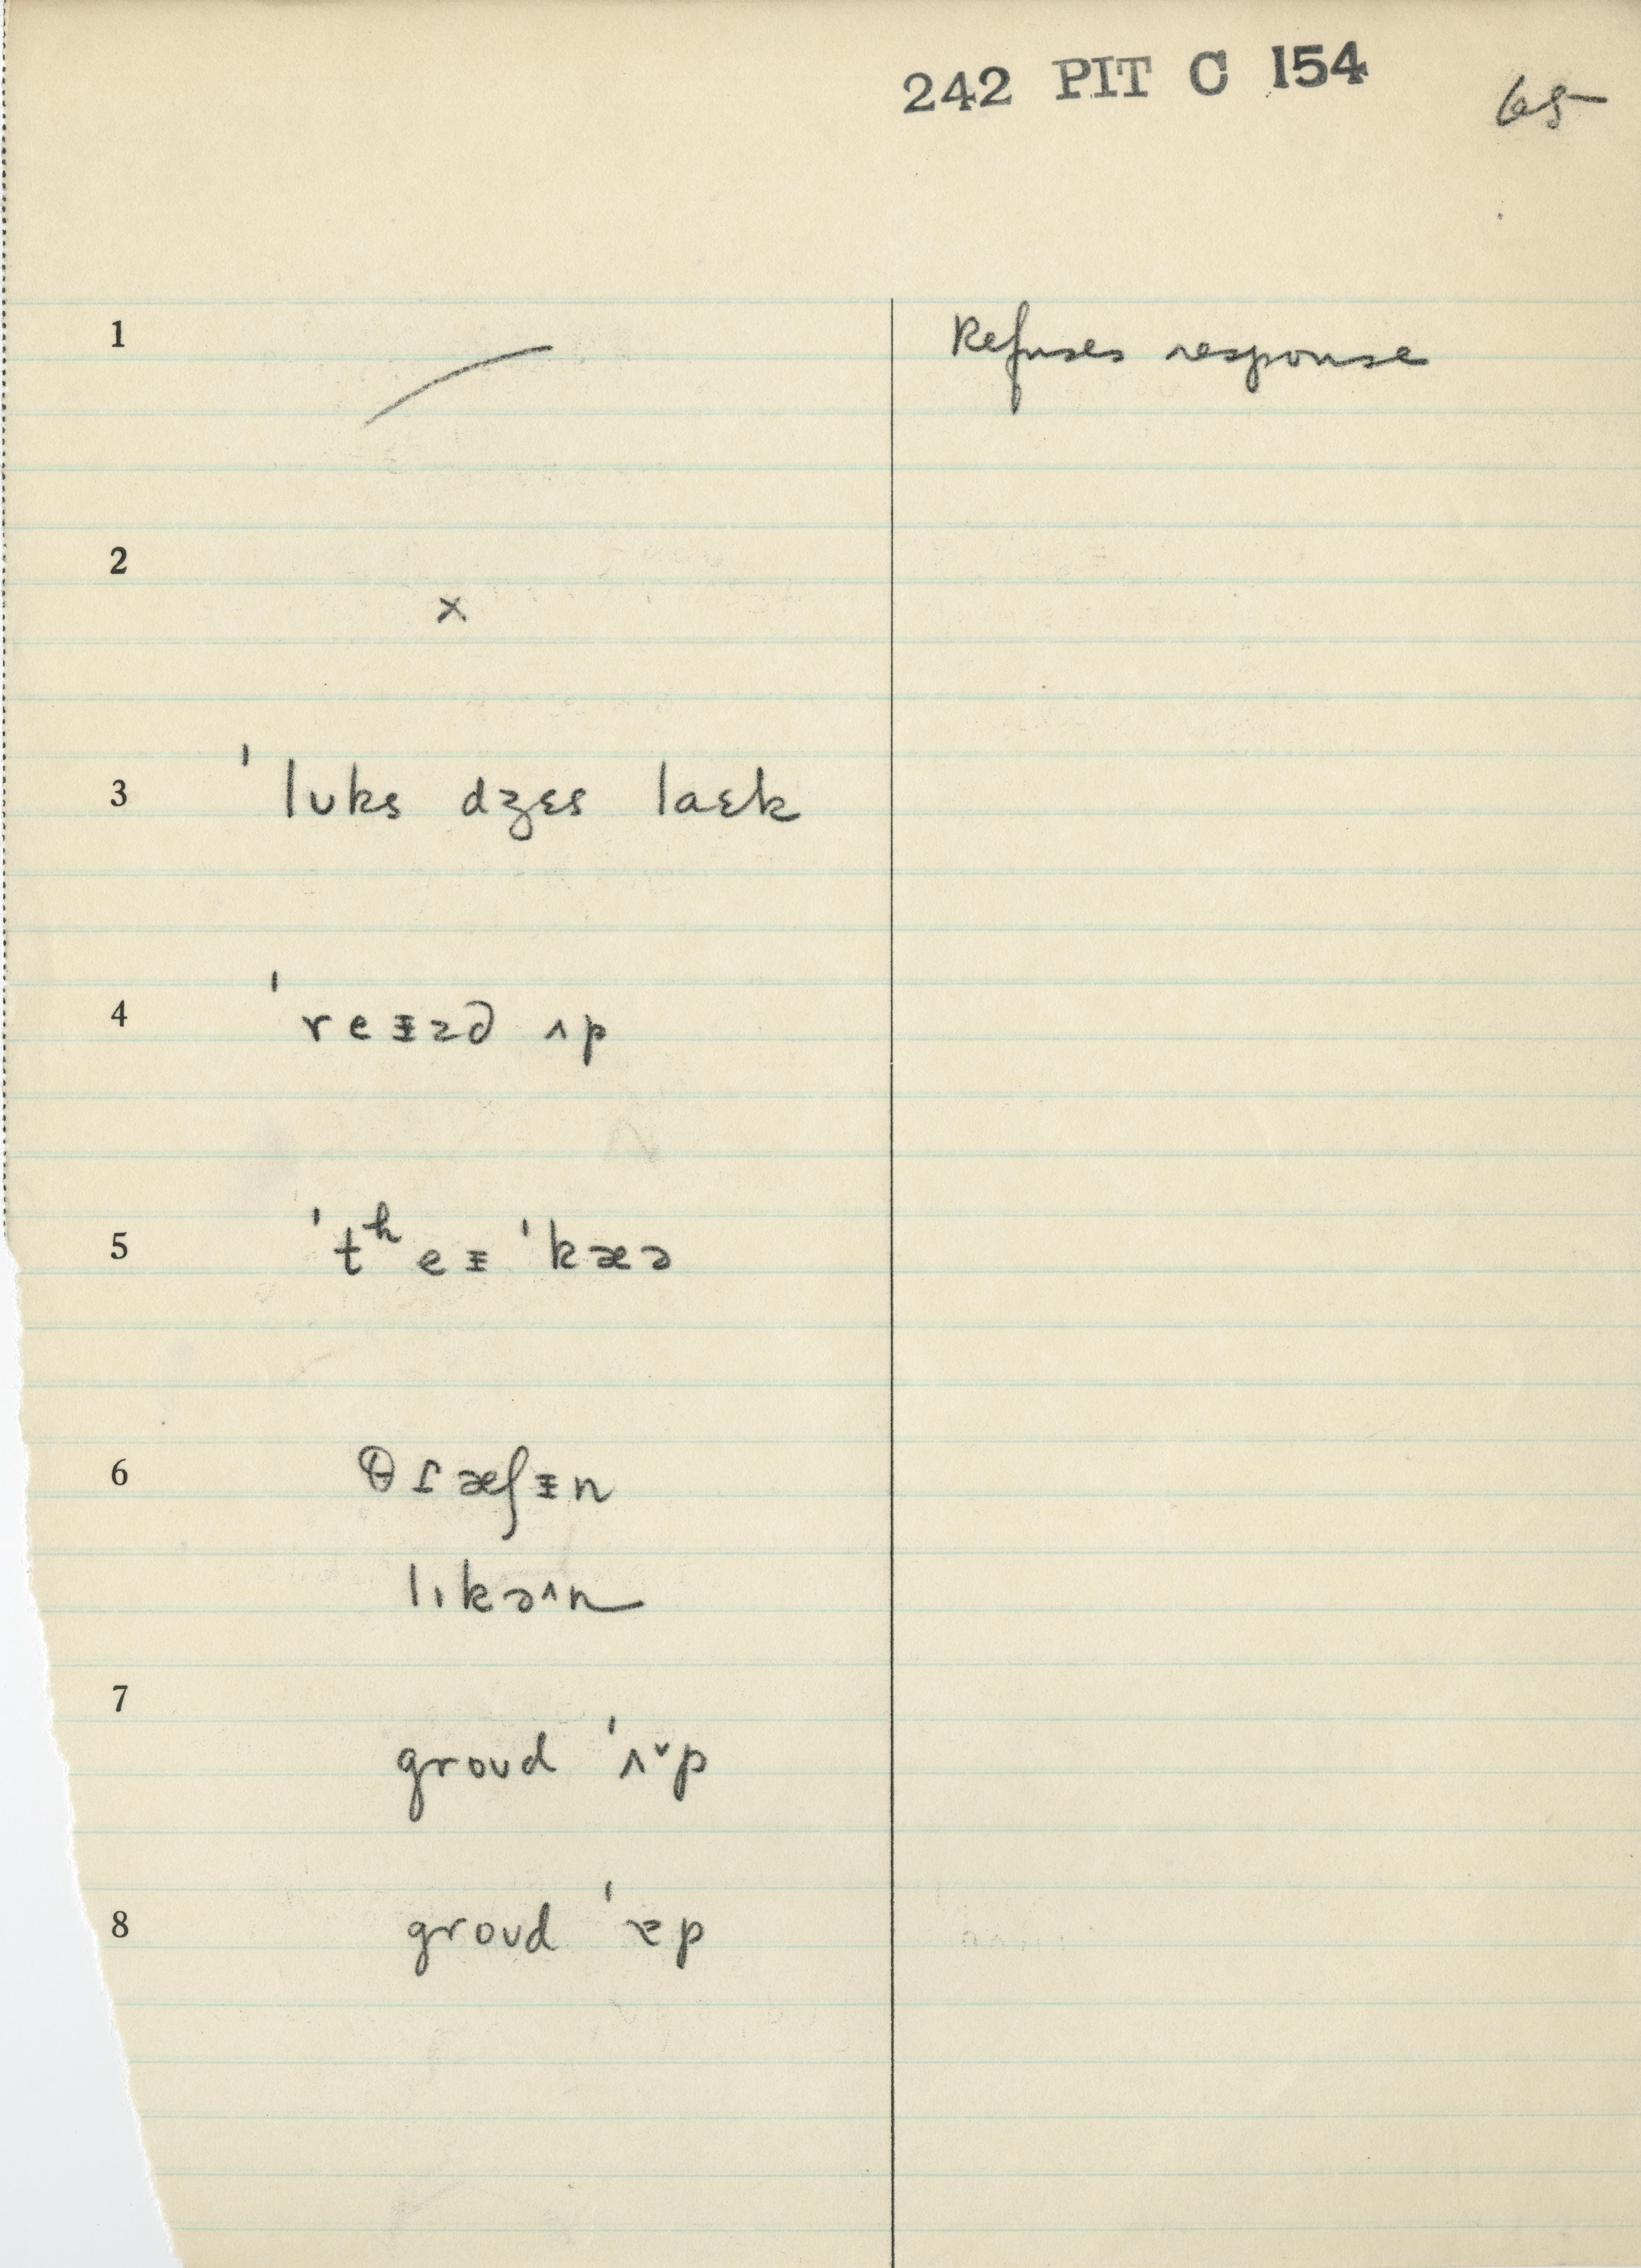 242 PIT C 154
65
1 Refuses response
2 x
3 ˈlʊks dʒɛs laɛk
4 ˈreᵻzd ʌp
5 ˈtʰeᵻ ˈkæə
6
lɪkəʌn
7 groʊd ˈʌˇp
8 groʊd ˈɐp